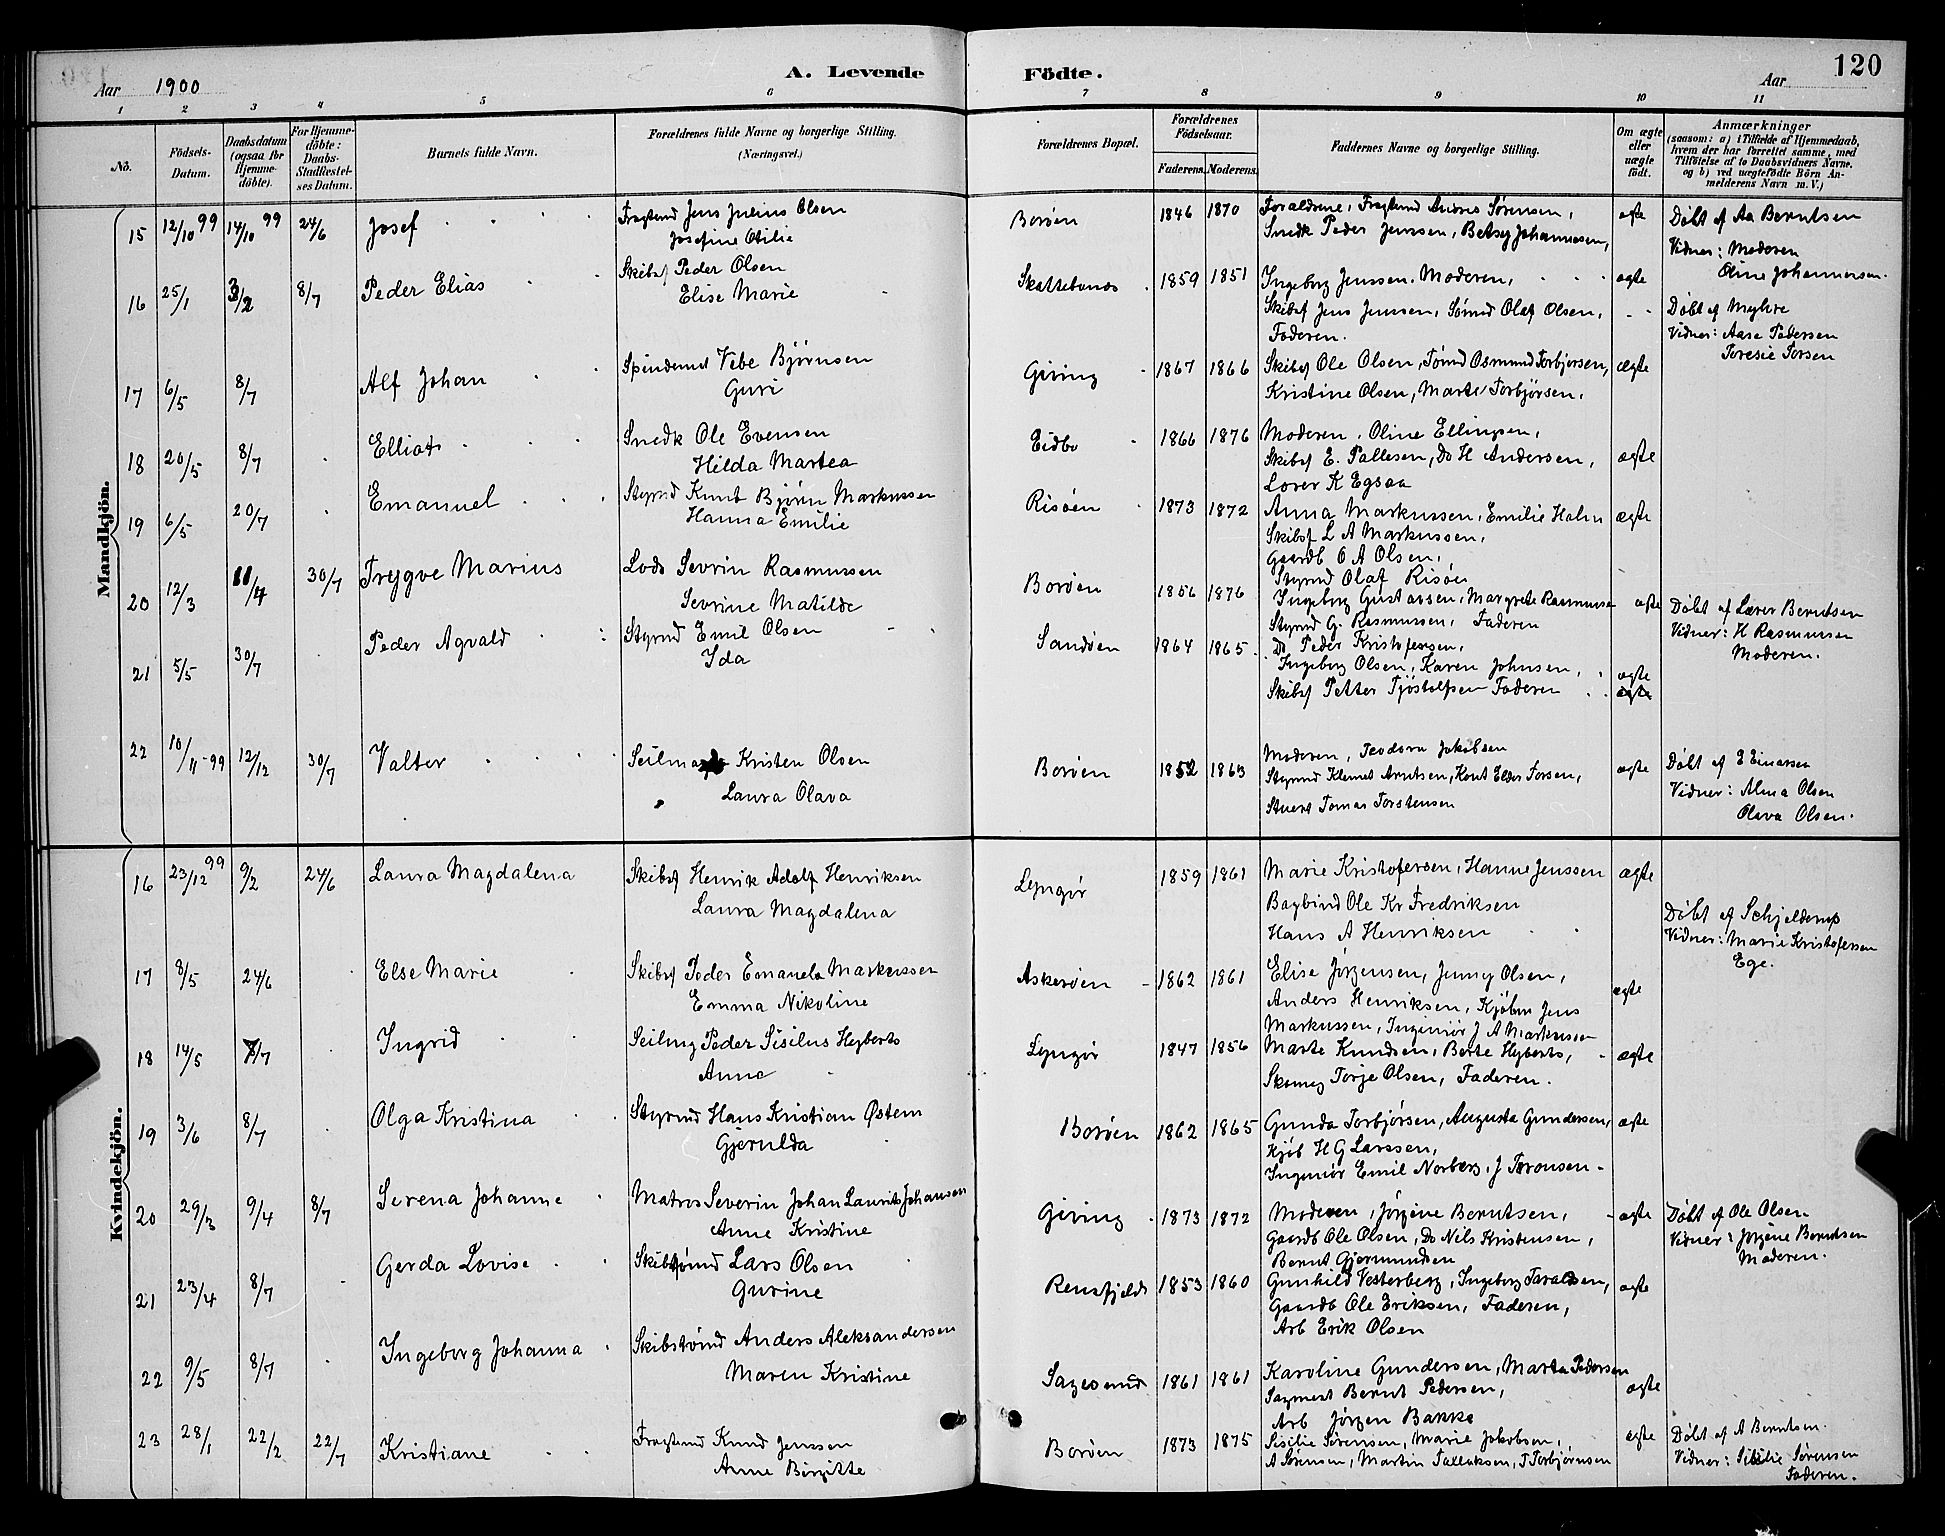 120
Aar 1900
A. Levende Födte.
Aar
1 2 3 4 5 6 7 8 9 10 11
No.
Födsels-Datum.
Daabsdatum (ogsaa for Hjemme-döbte).
For Hjemme-döbte: Daabs-Stadfæstel-ses Datum.
Barnets fulde Navn.
Forældrenes fulde Navne og borgerlige Stilling. (Næringsvei.)
Forældrenes Bopæl.
Forældrenes Födselsaar.
Faderens. Moderens.
Faddernes Navne og borgerlige Stilling.
Om ægte eller uægte födt.
Anmærkninger
(saasom: a) i Tilfælde af Hjemmedaab,
hvem der har forrettet samme, med
Tilföielse af to Daabsvidners Navne.
og b) ved uægtefödte Börn An-
melderens Navn m. V.)
Mandkjön.
15 12/10 99 14/10 99 24/6 Josef Fragtmd Jens Julius Olsen Borøen 1846 1870 Forældrene, Fragtmd Sørensen, ægte Døbt af Aa Berntsen
Josefine Otilie Snedk Peder Jenssen, Betsy Johannesen, Vidner: Moderen
Oline Johannersen.
16 25/1 8/7 Peder Elias Skibsf Peder Olsen 1859 1851 Ingeborg Jenssen. Moderen, ægte
Elise Marie Skibsf Jens Jenssen, Sømd Olaf Olsen, Døbt af
Faderen. Vidner: Aase Pedersen
Teresie Torsen
17 6/5 8/7 Alf Johan Vebe Bjørnsen Giving 1867 1866 Skibsf Ole Olsen, Tømd Osmund Torbjørsen, ægte
Guri Kristine Olsen, Marte Torbjørsen,
18 20/5 8/7 Elliot Snedk Ole Evensen Eidbo 1866 1876 Moderen, Oline Ellingsen,
Hilda Martea Skibsf E. Pallesen, Do H Andersen, ægte
Lærer K Egsaa
19 6/5 20/7 Emanuel Styrmd Knut Bjørn Markussen Risøen 1873 1872 Anna Markussen, Emilie Halm ægte
Hanna Emilie Skibsf L A Markussen,
Gaardb O A Olsen,
Styrmd Olaf Risøen
20 12/3 11/4 30/7 Trygve Marius Lods Sevrin Rasmussen Borøen 1856 1876 Ingeborg Gustavsen, Margrete Rasmussen ægte Døbt af Lærer Berntsen
Sevrine Matilde Styrmd G. Rasmussen, Faderen Vidner: H Rasmussen
Moderen.
21 5/5 30/7 Peder Agvald Styrmd Emil Olsen Sandøen 1864 1865 Do Peder Kristofersen,
Ida Ingeborg Olsen, Karen Johnsen, ægte
Skibsf Petter Tjøstolfsen Faderen ægte
22 10/11-99 12/12 30/7 Valter Kristen Olsen Borøen 1852 1863 Moderen, Teodora Jakobsen ægte Døbt af E Einarsen
Laura Olava Styrmd Klemet Arntsen, Elder Torsen, Vidner: Alma Olsen
Stuert Tomas Torstensen Olava Olsen.
Kvindekjön.
16 23/12 99 9/2 24/6 Laura Magdalena Skibsf Henrik Adolf Henriksen Lyngør 1859 1861 Marie Kristofersen, Hanne Jenssen ægte
Laura Magdalena Bagbind Ole Kr Fredriksen Døbt af Schjelderup
Hans A Henriksen Vidner: Marie Kristofersen
Ege.
17 8/5 24/6 Else Marie Skibsf Peder Emanuels Markussen Askerøen 1862 1861 Elise Jørgensen, Jenny Olsen, ægte
Emma Nikoline Anders Henriksen, Kjøbm Jens
Markussen, Ingeniør J A Markussen
18 14/5 7/7 Ingrid Seilmg Peder Sisilus Heyberts Lyngør 1847 1856 Marte Knudsen, Berte Heyberts, ægte
Anne Skomg Torje Olsen, Faderen.
19 3/6 8/7 Olga Kristina Styrmd Hans Kristian Østem Borøen 1862 1865 Gunda Torbjørsen, Augusta Gundersen, ægte
Gjerulda Kjøb H G Larssen,
Ingeniør Emil Norberg, J Taronsen
20 29/3 9/4 8/7 Serena Johanne Matros Severin Johan Laurits Johansen Giving 1873 1872 Moderen, Jørgine Berntsen, ægte Døbt af Ole Olsen
Anne Kristine Gaardb Ole Olsen, Do Nils Kristensen, Vidner: Jørgine Berntsen
Bernt Gjermundsen Moderen.
21 23/4 8/7 Gerda Lovise Skibstømd Lars Olsen Rensfjeld 1853 1860 Gunhild Vesterberg, Ingeborg Taraldsen, ægte
Gurine Gaardb Ole Eriksen, Faderen,
Arb Erik Olsen
22 9/5 8/7 Ingeborg Johanna Skibstømd Anders Aleksandersen Sagesund 1861 1861 Karoline Gundersen, Marta Pedersen ægte
Maren Kristine Sagmest Bernt Pedersen,
Arb Jørgen Bakke
23 28/1 22/2 22/7 Kristiane Fragtmd Knud Jenssen Borøen 1873 1875 Sisilie Sørensen, Marie Jakobsen, ægte Døbt af A Berntsen.
Anne Birgitte A Sørensen, Martin Tallaksen, T Torbjørnsen Vidner: Sisilie Sørensen
Faderen.